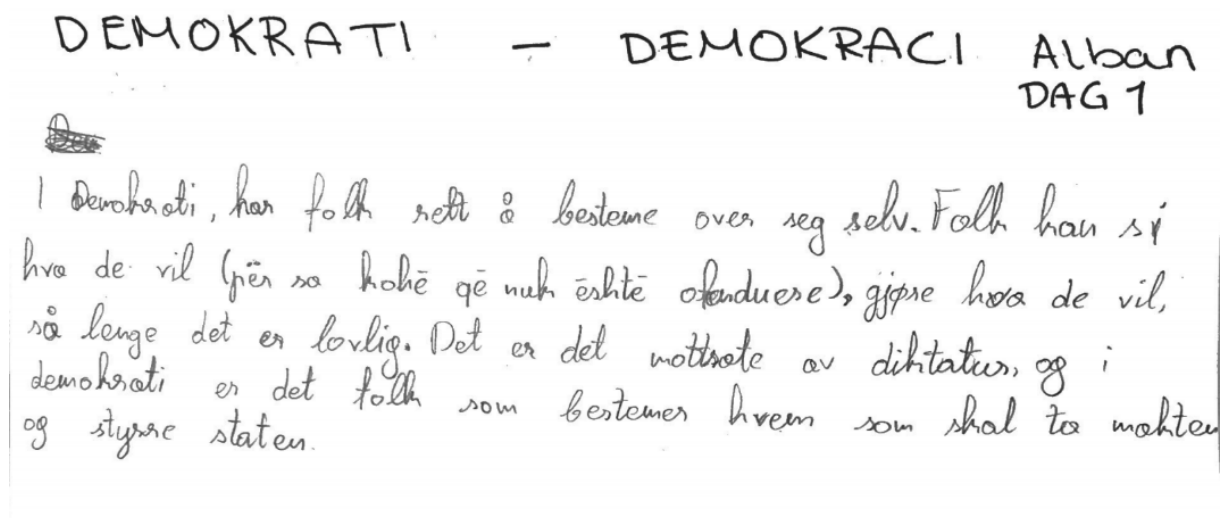 DEMOKRATI - DEMOKRACI Alban
DAG 1
I Demokrati, har folk rett å besteme over seg selv. Folk kan si
hva de vil (për sa kohë që nuk është ofenduese), gjøre hva de vil,
så lenge det er lovlig. Det er det mottsate av diktatur, og i
demokrati er det folk som bestemer hvem som skal ta makten
og styrre staten.